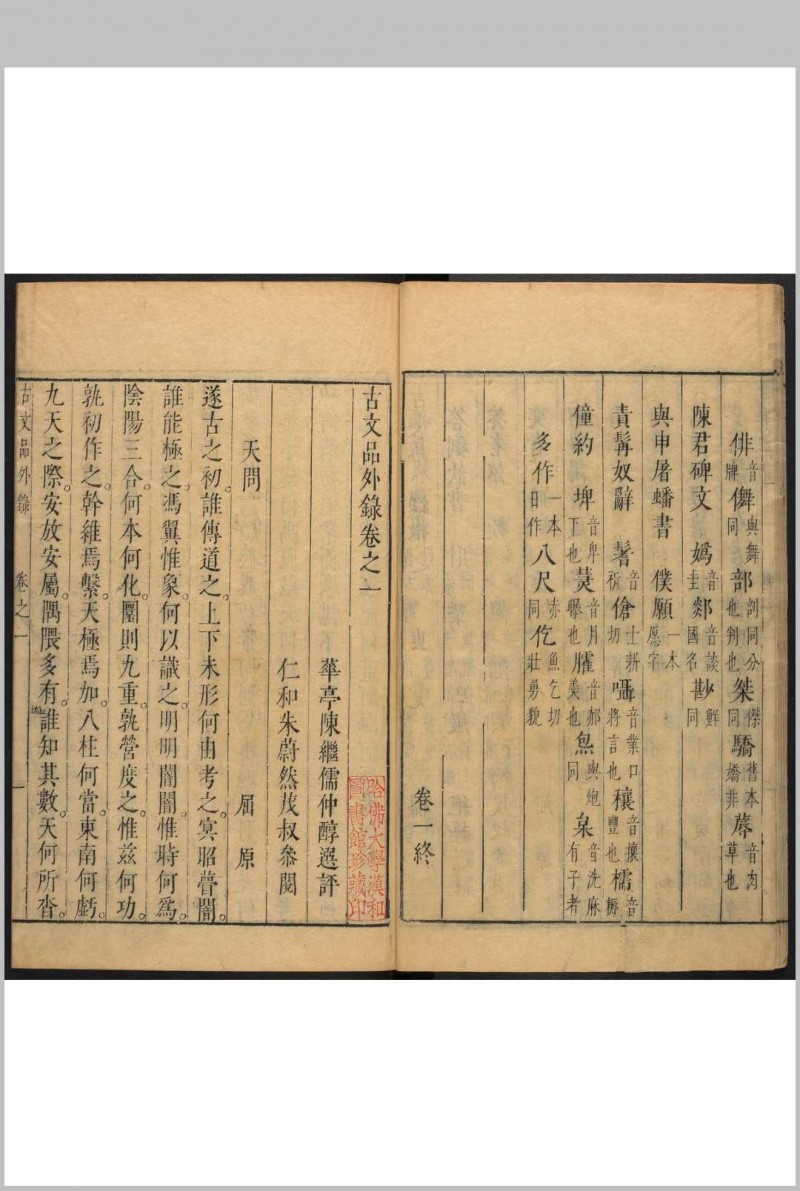 俳音牌儛與舞同部剖同分也判也桀傑同驕舊本嬌非蓐音肉草也
陳君碑文 嬀音圭郯音談國名尠鮮同
與申屠蟠書 僕願一本愿字
責髯奴辭 謇音傖士新切囁音業口將言也穰音攘豐也檽音
僮約 埤音卑下也臛音郝羹也炰與炮同枲音洗麻有子者
多作一本日作八尺赤同仡魚乞切壯勇貌
卷一終
古文品外錄卷之一
華亭陳繼儒仲醇選評
仁和朱蔚然茂叔叅閱
哈佛大學漢和圖書館珍藏印
天問 屈原
遂古之初。誰傳道之。上下未形。何由考之。冥昭瞢闇。
誰能極之。馮翼惟象。何以識之。明明闇闇。惟時何為。
陰陽三合。何本何化。圜則九重。孰營度之。惟茲何功。
孰初作之。斡維焉繫。天極焉加。八柱何當。東南何虧。
九天之際。安放安屬。隅隈多有。誰知其數。天何所沓。
古文品外錄 卷之一 一